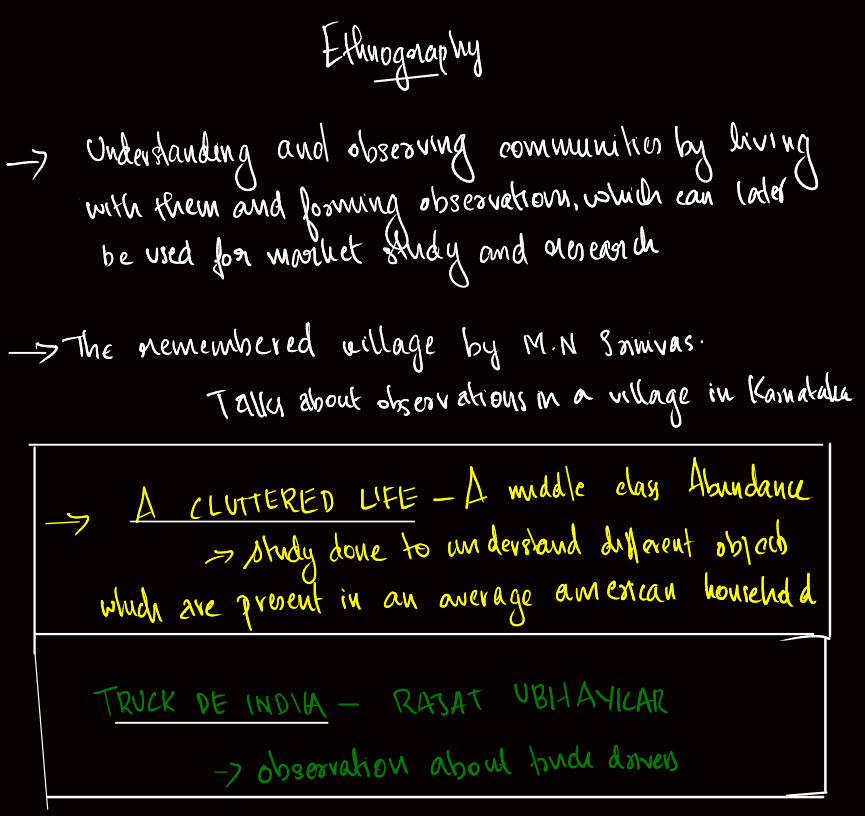 Ethnography
→ Understanding and observing communities by living
with them and forming observations, which can later
be used for market study and research
→ The remembered village by M.N Srinivas.
Talks about observations in a village in Karnataka
→ A CLUTTERED LIFE – A middle class Abundance
→ study done to understand different objects
which are present in an average american household
TRUCK DE INDIA – RAJAT UBHAYKAR
→ observation about truck drivers